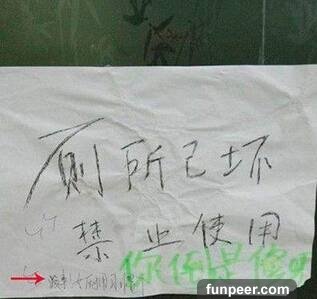 厕所已坏
禁止使用
你还是修吧
funpeer.com